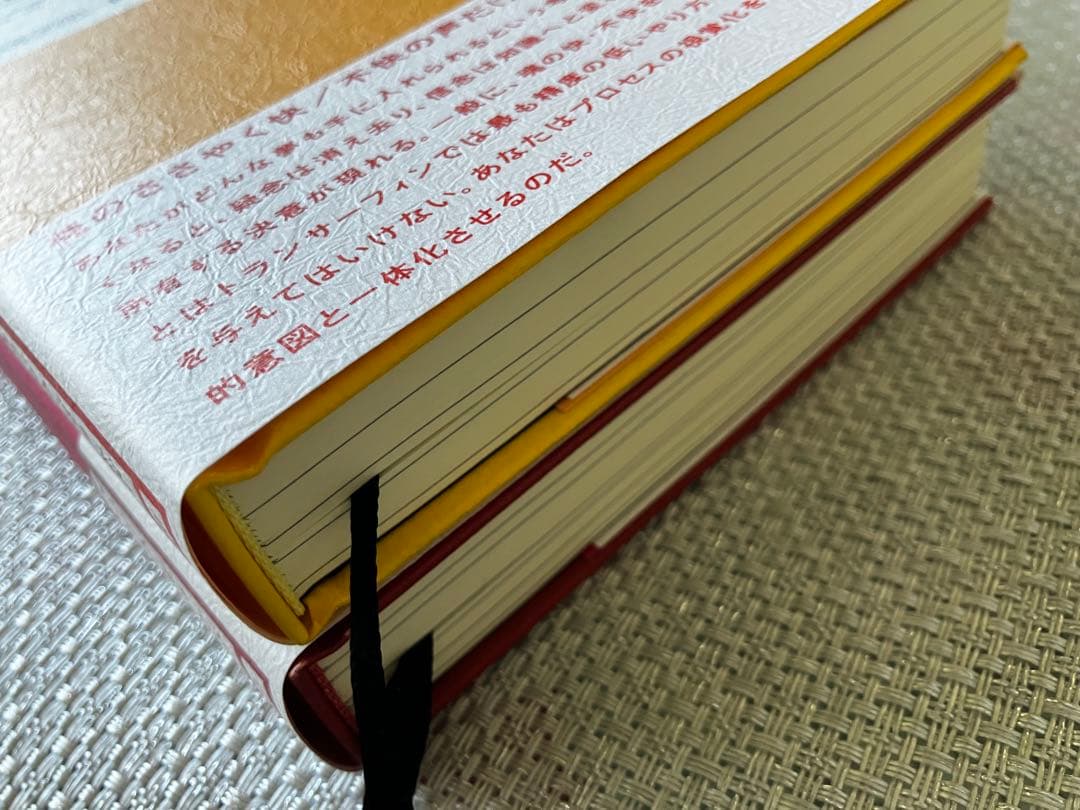 のささやく快/不快の声だけ
あなたがどんな夢も手に入れられると
くなると、疑念は消え去り、信念は知識へと
所有する決意が現れる。一般に、魂の快・不快を
とはトランサーフィンでは最も精度の低いやり方
を与えてはいけない。あなたはプロセスの視覚化を
的意図と一体化させるのだ。